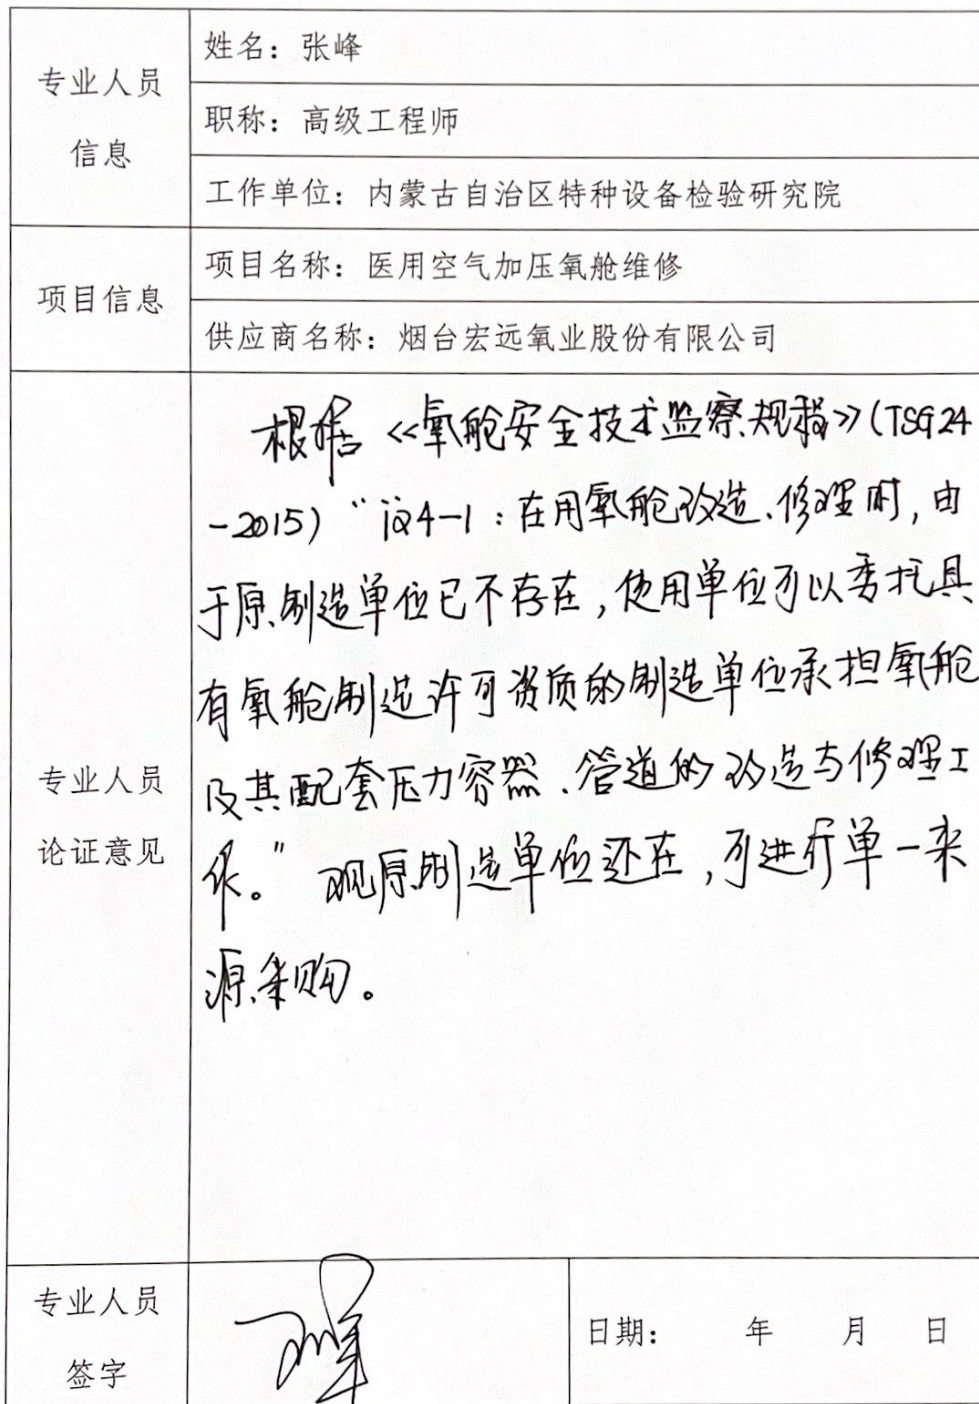 专业人员
信息
姓名：张峰
职称：高级工程师
工作单位：内蒙古自治区特种设备检验研究院
项目信息
项目名称：医用空气加压氧舱维修
供应商名称：烟台宏远氧业股份有限公司
专业人员
论证意见
根据《氧舱安全技术监察规程》（TSG24
-2015）“注4-1：在用氧舱改造、修理时，由
于原制造单位已不存在，使用单位可以委托具
有氧舱制造许可资质的制造单位承担氧舱
及其配套压力容器、管道的改造与修理工
作。”现原制造单位还在，可进行单一来
源采购。
专业人员
签字
日期： 年 月 日